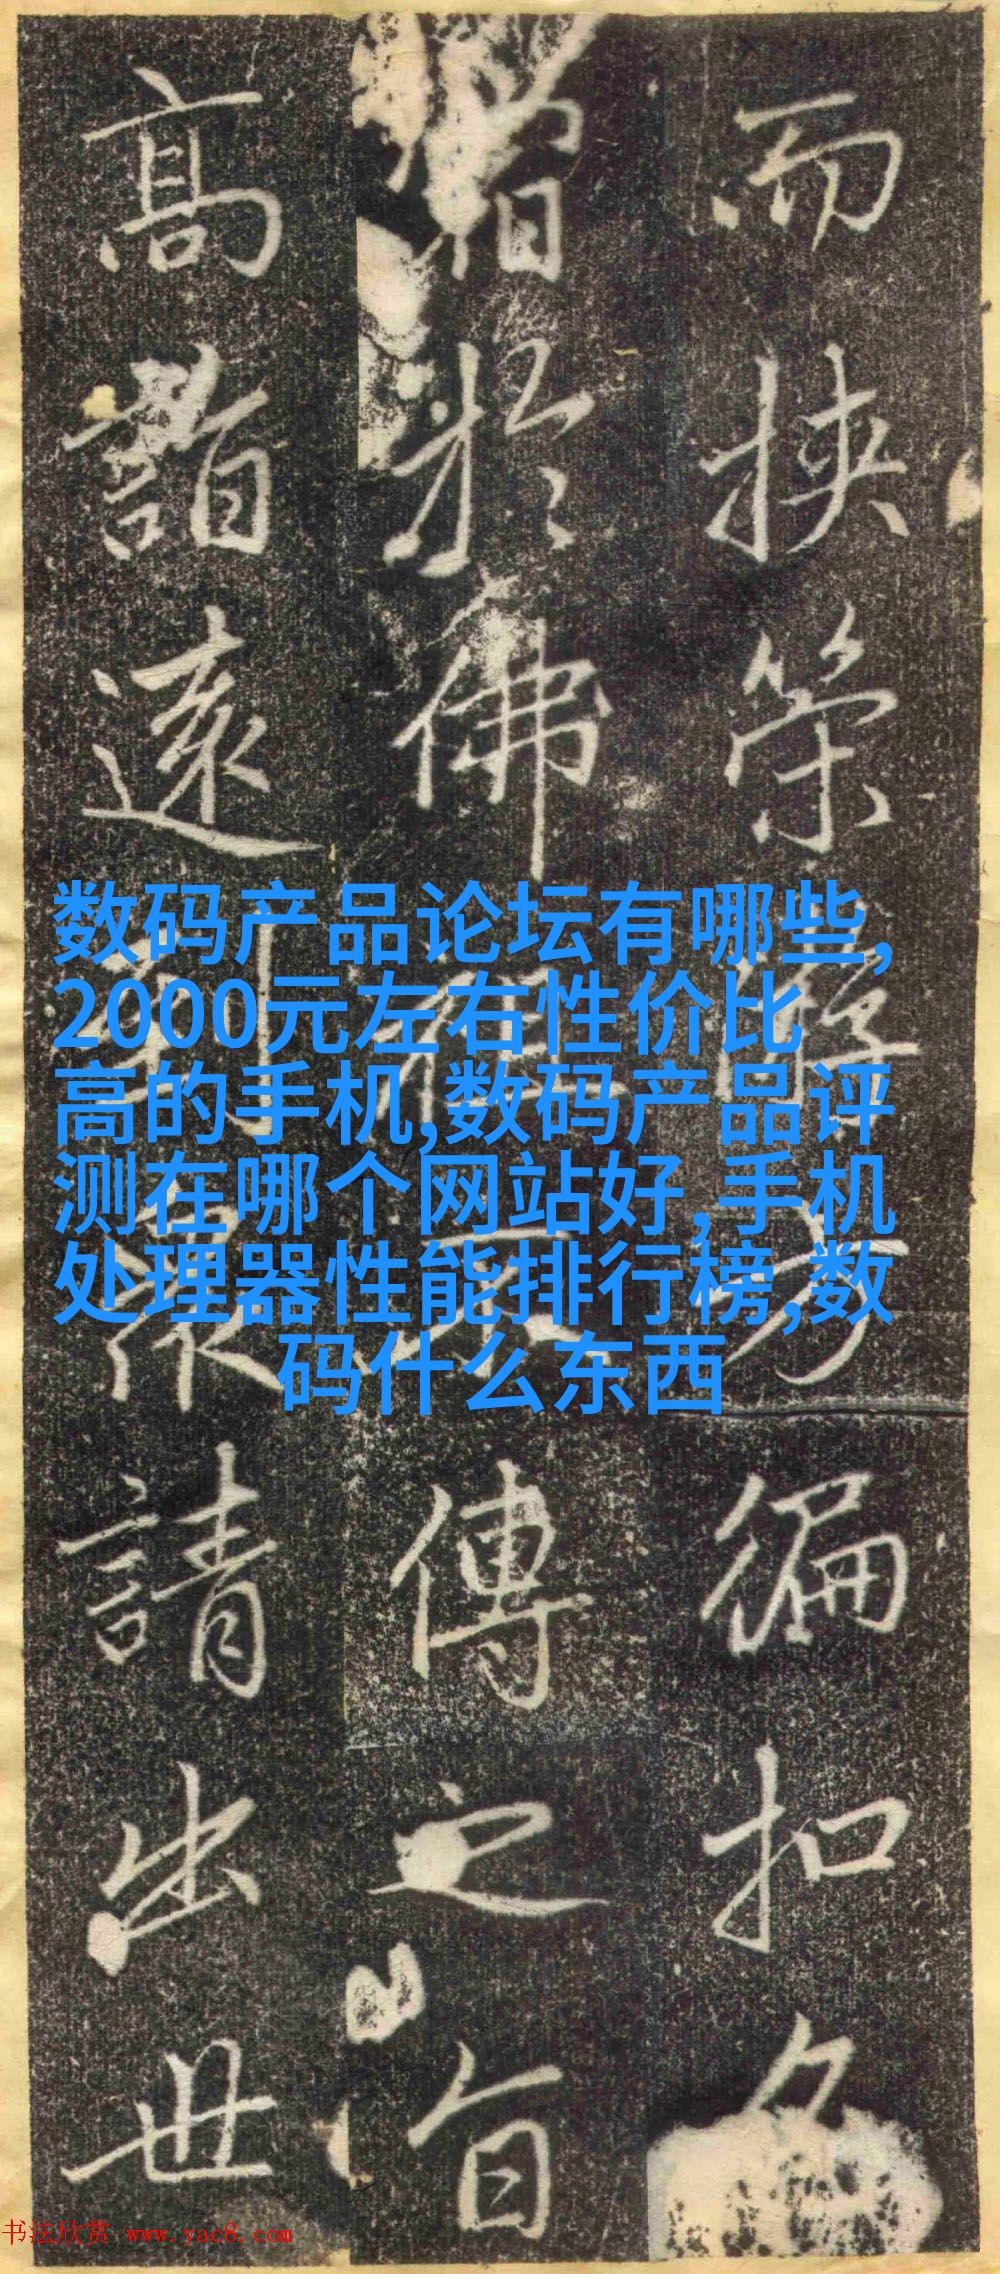 而挟策辞方徧扣名
旨於佛祖不傳之旨
高詣遠到衆請出世
数码产品论坛有哪些,
2000元左右性价比
高的手机,数码产品评
测在哪个网站好,手机
处理器性能排行榜,数
码什么东西
书法欣赏 www.yac8.com